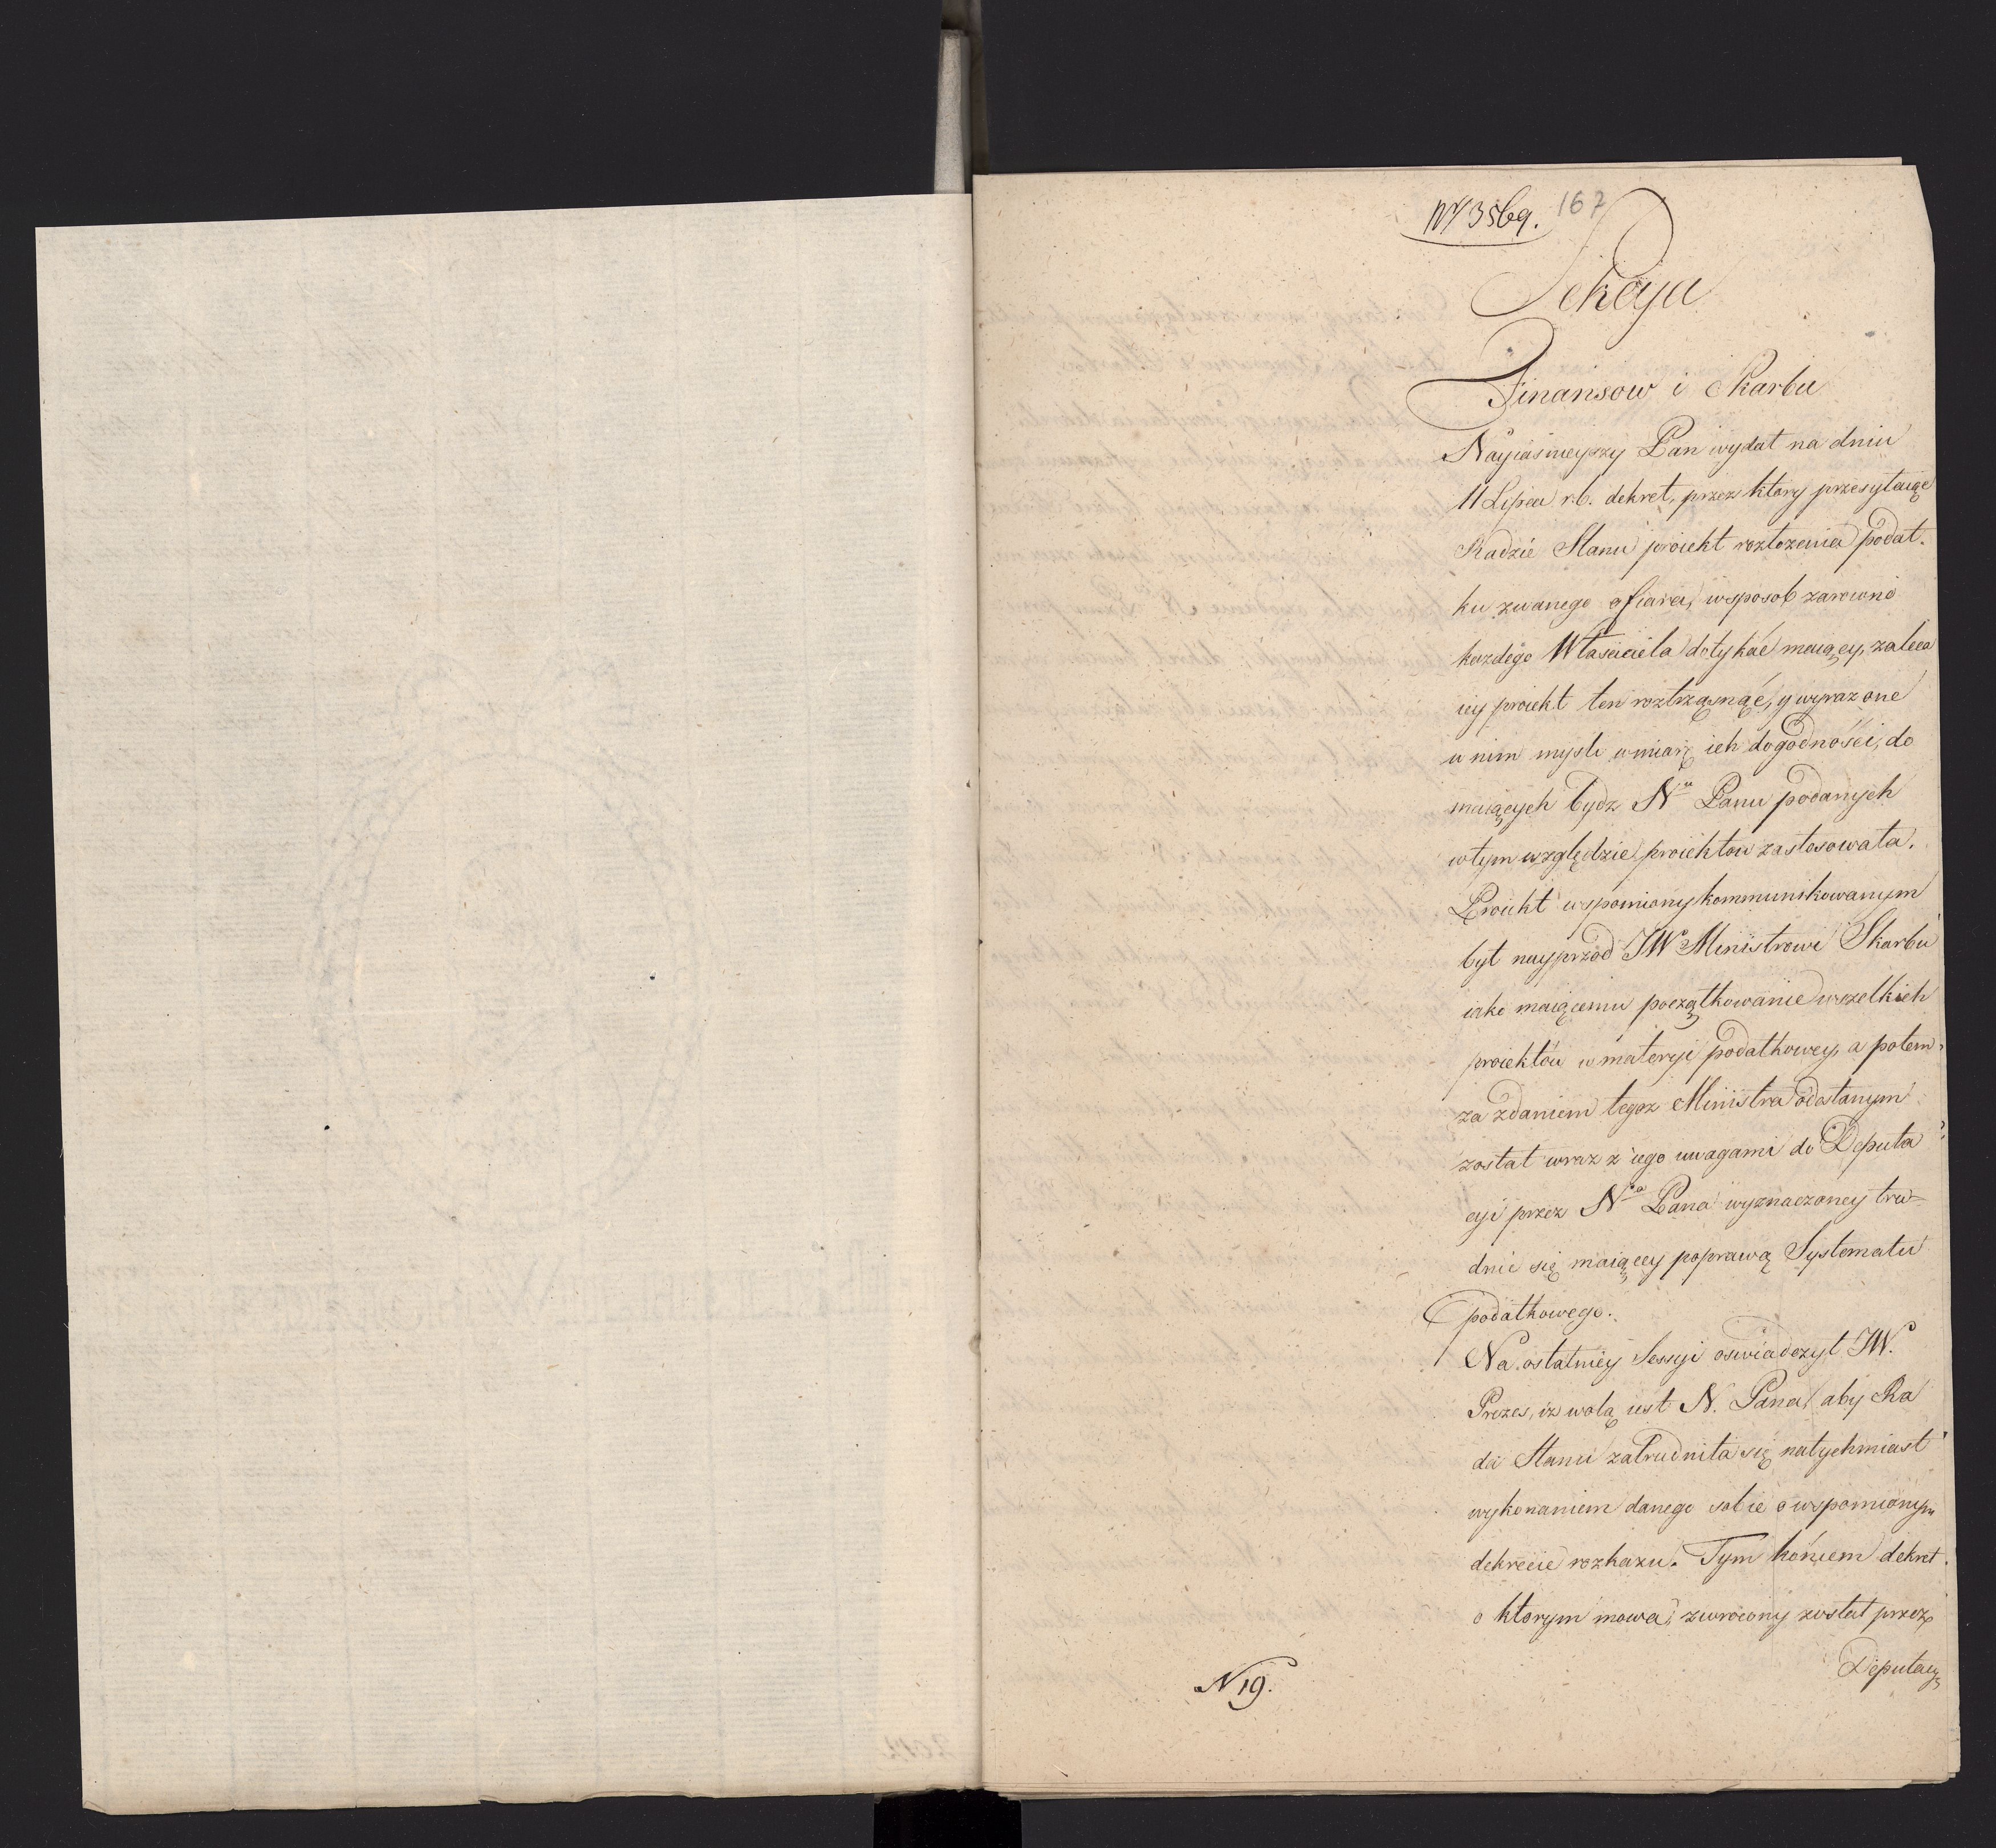 Nr 3569. 167
Sekcya
Finansow i Skarbu
Nayiasnieyszy Pan wydał na dniu
11 Lipca r.b. dekret, przez ktory przesyłaiąc
Radzie Stanu proiekt rozłożenia podat-
ku zwanego ofiara, wsposob zarowno
każdego Własciciela dotykać maiący, zaleca
iey proiekt ten roztrząsnąć, y wyrażone
w nim mysli wmiarę ich dogodności, do
maiących bydz Nu Panu podanych
wtym względzie proiektow zastosowała.
Proiekt wspomiony kommunikowanym
był nayprzod JW Ministrowi Skarbu
iako maiącemu początkowanie wszelkich
proiektów w materyi podatkowey, a potem
za zdaniem tegoz Ministra odesłanym
został wraz z iego uwagami do Deputa
cyi przez Ngo Pana wyznaczoney tru-
dnić się maiącey poprawą Systematu
podatkowego.
Na ostatniey Sessyi oswiadczył JW.
Prezes, iż wolą iest N. Pana aby Ra
da Stanu zatrudniła się natychmiast
wykonaniem danego sobie o wspomionym
dekrecie rozkazu. Tym końcem dekret
o ktorym mowa, zwrocony został przez
Deputacyą
N 19.